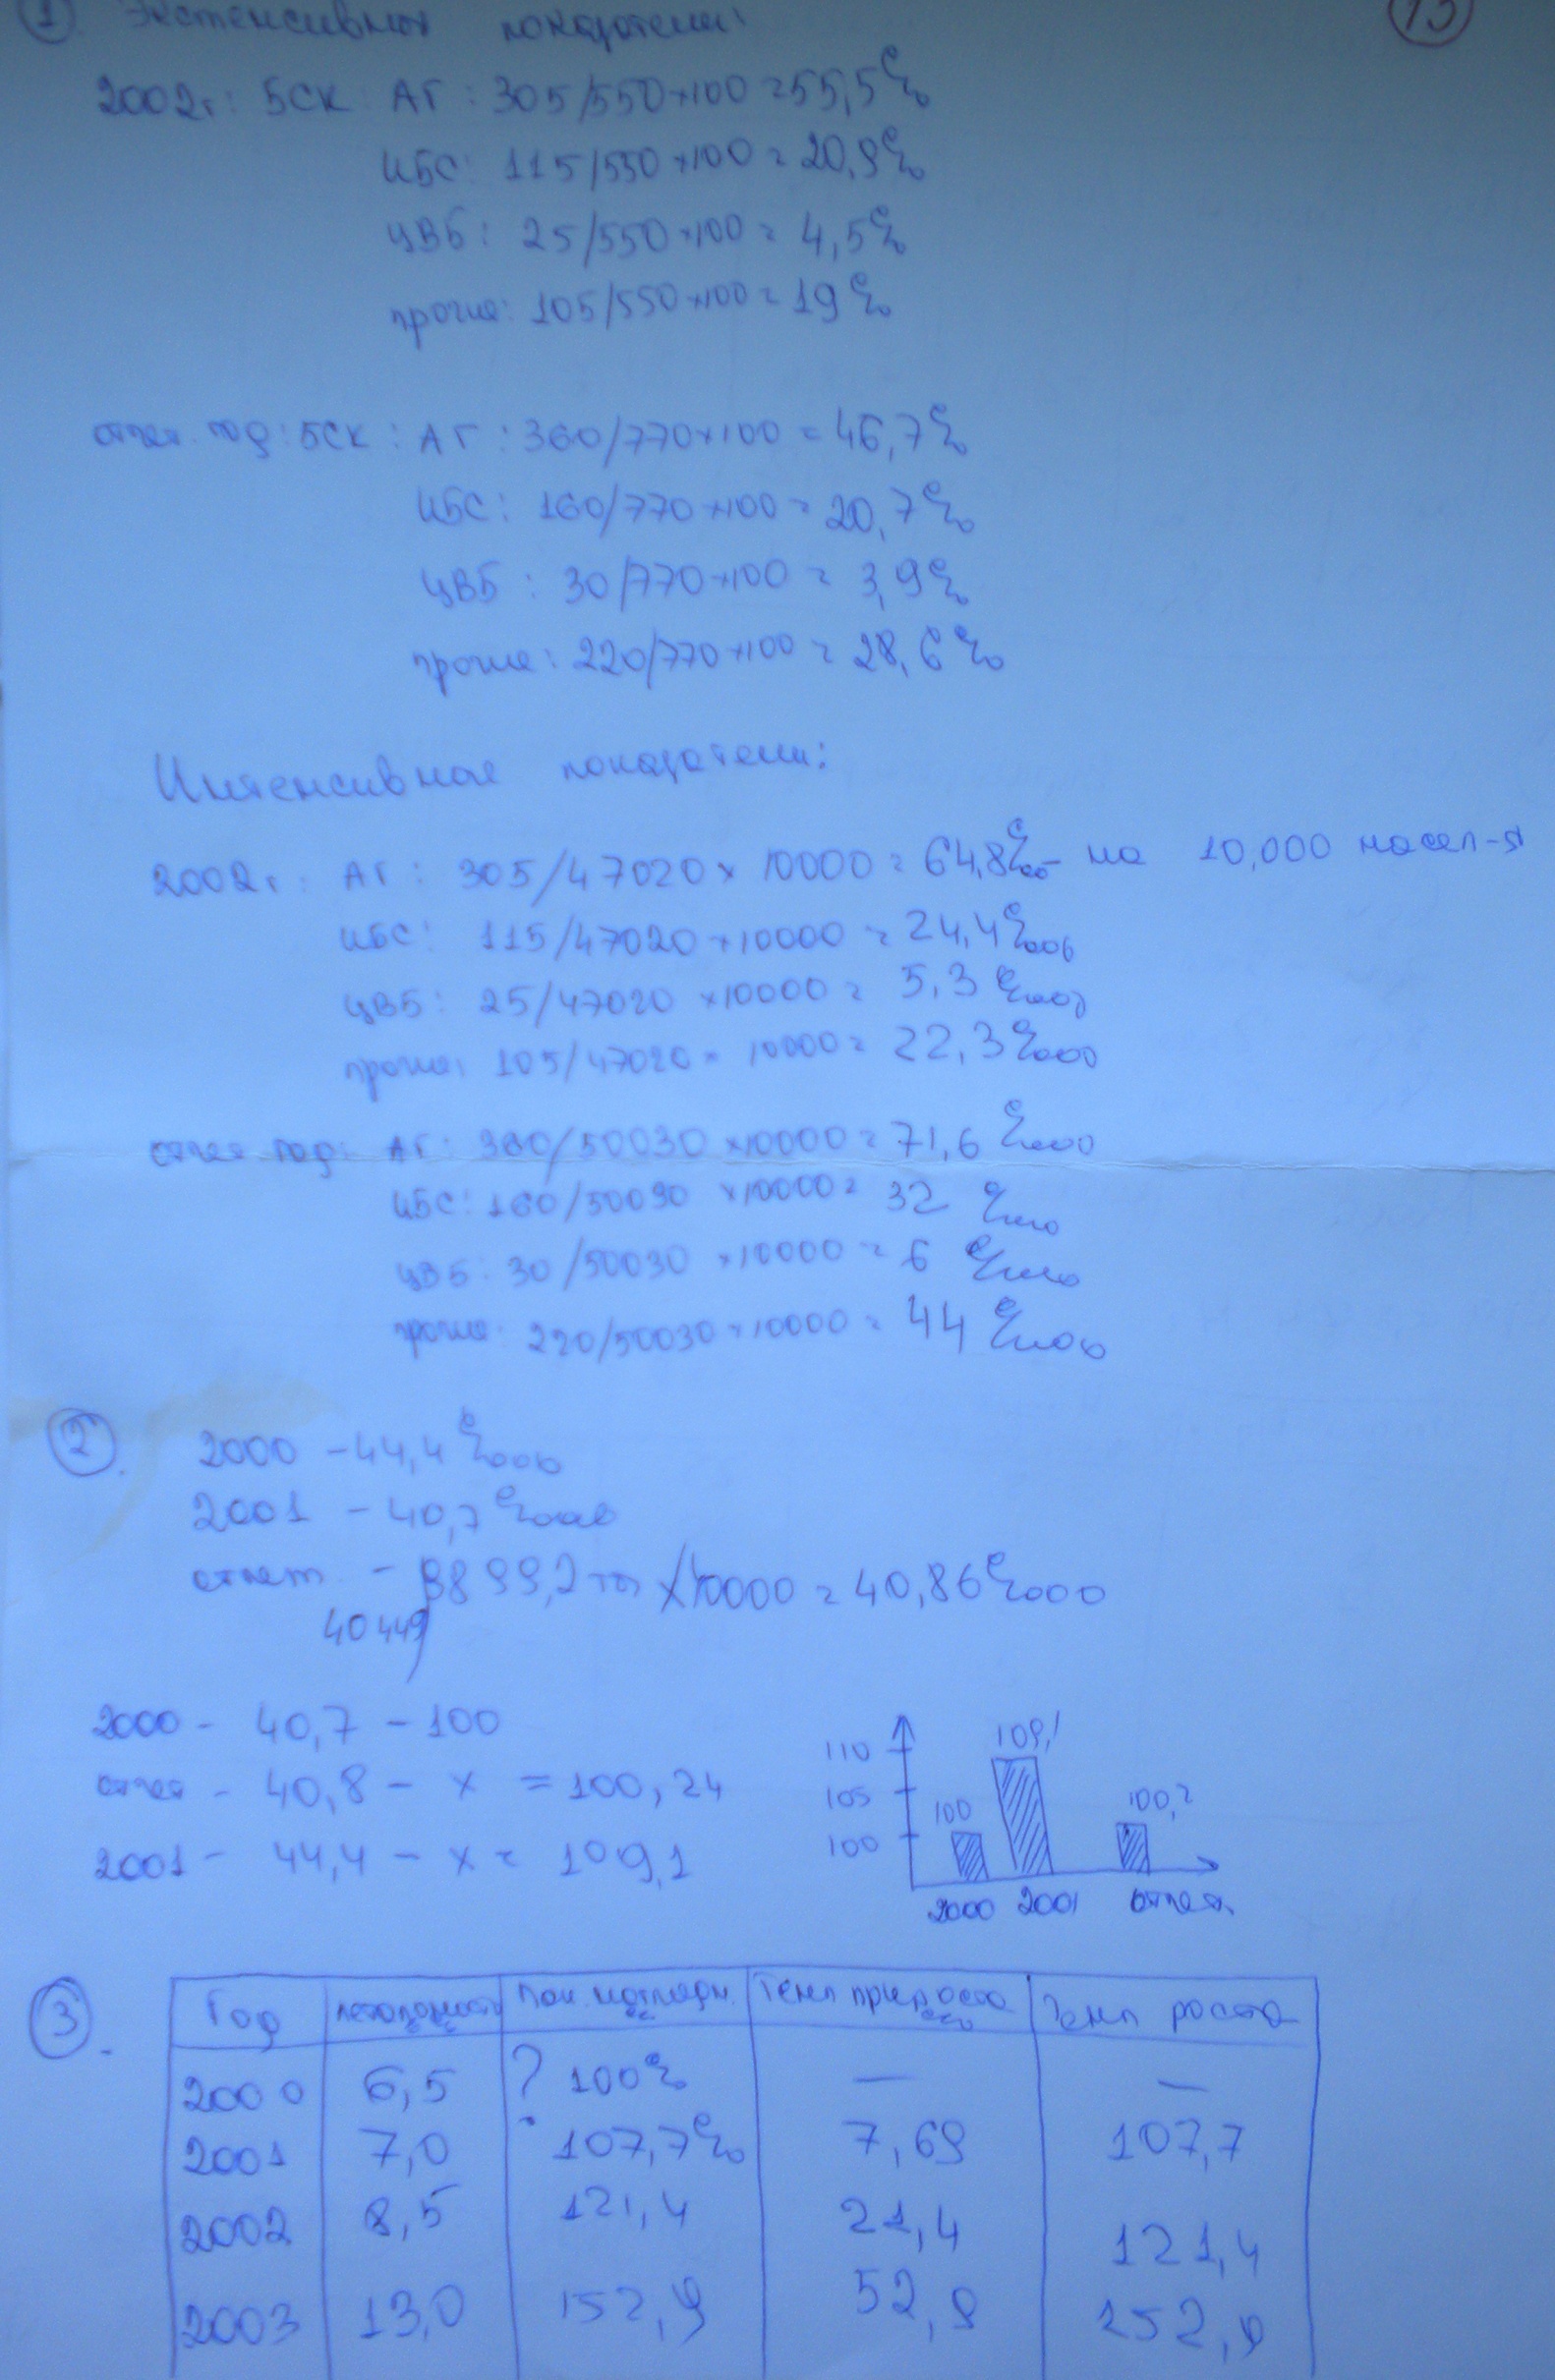 1 Экстенсивные показатели: 13
2002г: БСК АГ: 305/550×100=55,5%
ИБС: 115/550×100=20,9%
ЦВБ: 25/550×100=4,5%
прочие: 105/550×100=19%
отчет. год: БСК: АГ: 360/770×100=46,7%
ИБС: 160/770×100=20,7%
ЦВБ: 30/770×100=3,9%
прочие: 220/770×100=28,6%
Интенсивные показатели:
2002г: АГ: 305/47020×10000=64,8%00- на 10,000 насел-я
ИБС: 115/47020×10000=24,4%000
ЦВБ: 25/47020×10000=5,3%000
прочие: 105/47020×10000=22,3%000
отчет год: АГ: 360/50030×10000=71,6%000
ИБС: 160/50030×10000=32%000
ЦВБ: 30/50030×10000=6%000
прочие: 220/50030×10000=44%000
2. 2000 - 44,4%000
2001 - 40,7%000
отчет - 9899,2 ×10000=40,86%000
40449
2000 - 40,7 - 100
отчет - 40,8 - х = 100,24
2001 - 44,4 - х = 109,1
110 109,1
105 100 100,2
100
2000 2001 отчет.
3. Год летальность Пок. наглядн. Темп прироста Темп роста
2000 6,5 ? 100% — —
2001 7,0 107,7% 7,69 107,7
2002 8,5 121,4 21,4 121,4
2003 13,0 152,9 52,9 252,9